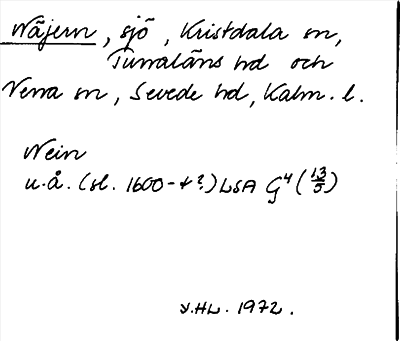 Näjern, sjö, Kristdala sn,
Tunaläns hd och
Vena sn, Sevede hd, Kalm. l.
Nein
u.å. (sl. 1600-t?) LSA G⁴ (13/5)
V.HL. 1972.